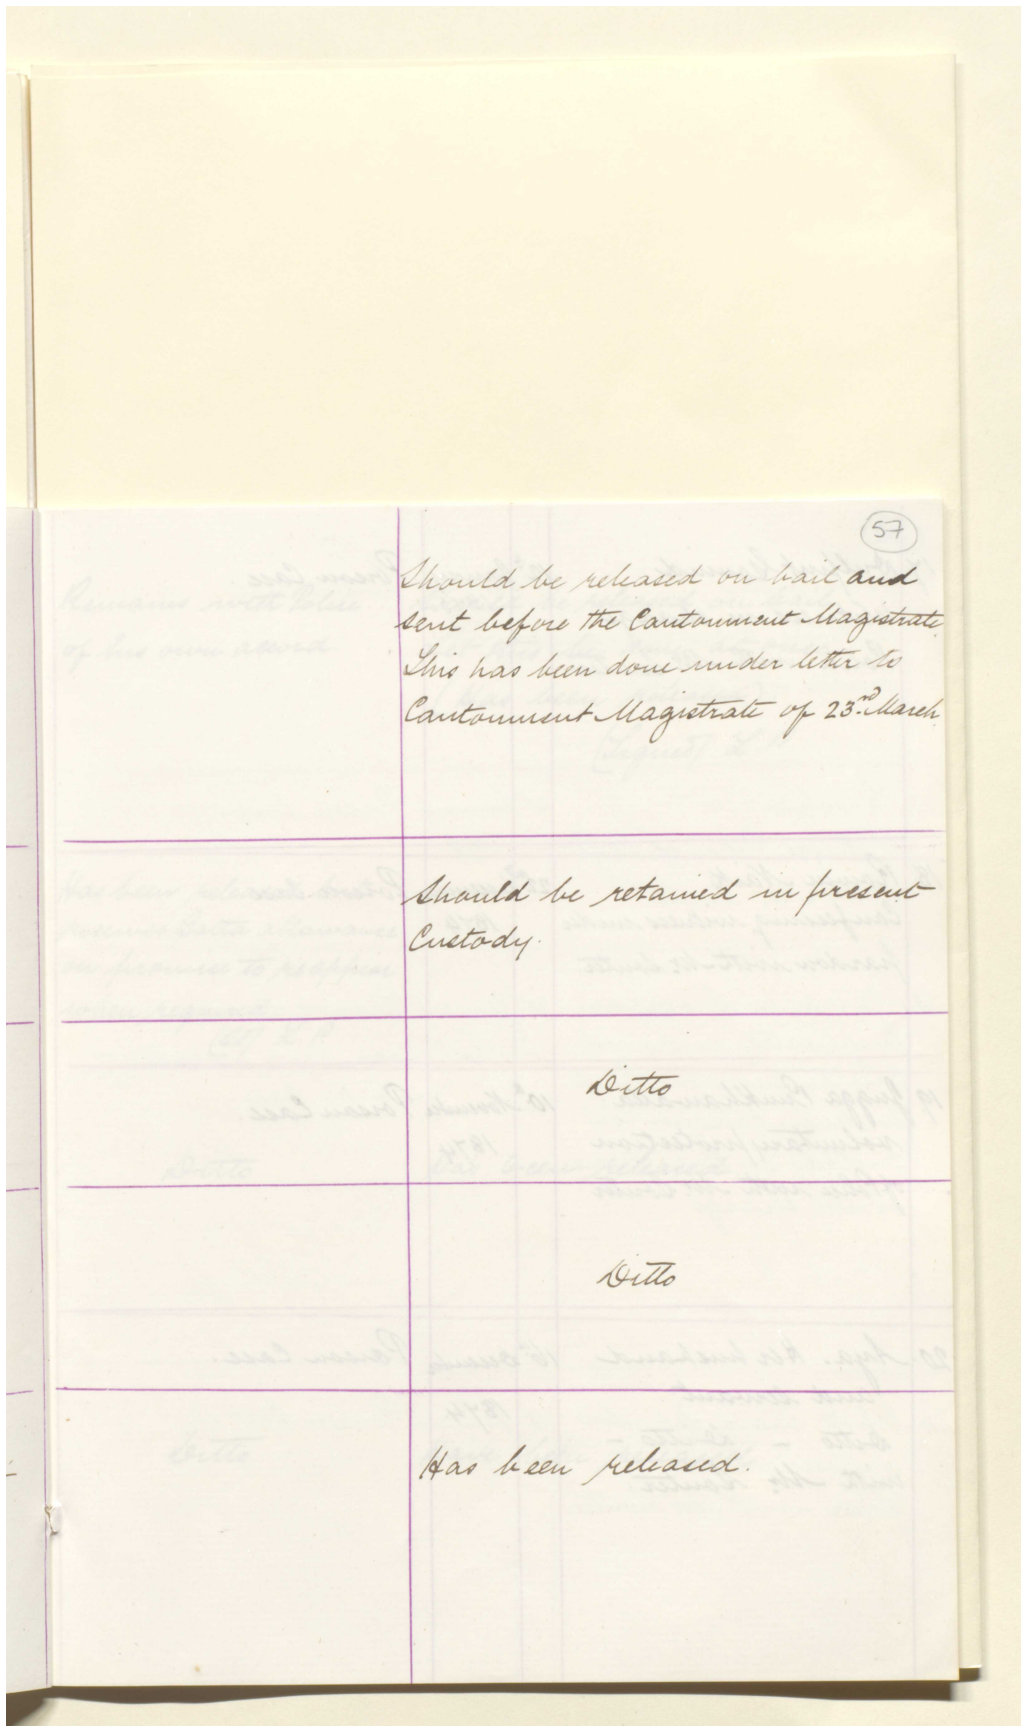 57
Should be released on bail and
sent before the Cantonment Magistrate.
This has been done under letter to
Cantonment Magistrate of 23rd March.
Should be retained in present
Custody.
Ditto
Ditto
Has been released.